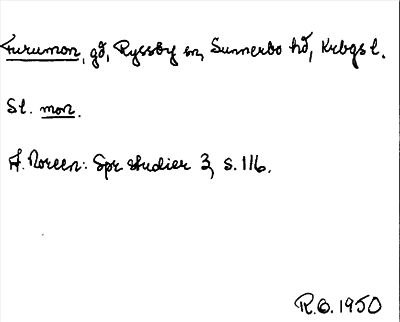 Furumon, gd, Ryssby sn, Sunnerbo hd, Krbgs l.
Sl. mon.
A. Noreen: Spr. studier 3, s. 116.
R.O. 1950